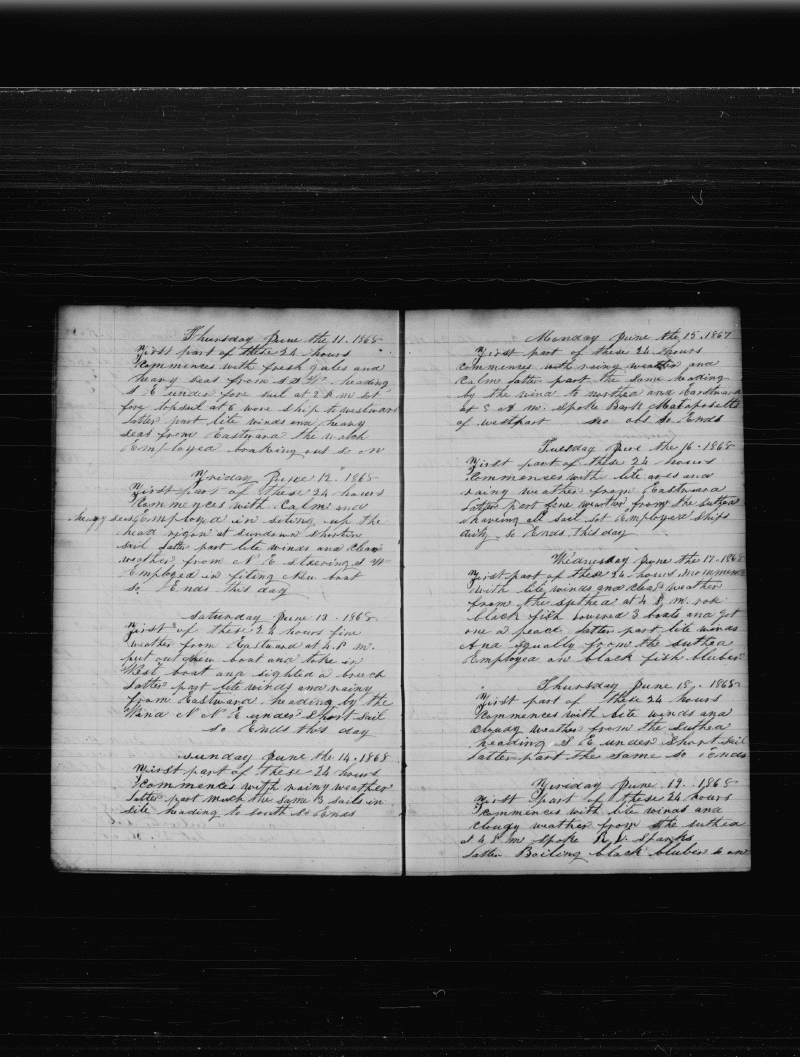 Thursday June the 11. 1868
First part of these 24 hours
Commences with fresh gales and
heavy seas from S S W. heading
S E under fore sail at 2 P M set
fore topsail at 6 wore ship to westward
Latter part lite winds and heavy
seas from Eastward the watch
Employed breaking out so
Friday June 12. 1868
First part of these 24 hours
Commences with Calm and
heavy seas Employed in seting up the
head rigon at sundown Shortin
sail Latter part lite winds and clear
weather from N E steering S W
Employed in fiting New boat
so Ends this day
Saturday June 13. 1868
First of these 24 hours fine
weather from Eastward at 4. P m.
put out New boat and toke in
West boat and sighted a breech
Latter part lite winds and rainy
from Eastward. heading by the
Wind N N E under Short sail
so Ends this day
Sunday June the 14. 1868
First part of these 24 hours
Commences with rainy weather
Latter part much the same 3 sails in
site heading to South so Ends
Monday June the 15. 1867
First part of these 24 hours
commences with rainy weather and
Calm Latter part the same heading
by the wind to northea and Eastward
at 5 A m. Spoke Bark Matapoisetts
of westport no obs so Ends
Tuesday June the 16. 1868
First part of these 24 hours
Commences with lite ares and
rainy weather from Eastward
Latter part fine weather from the suthea
having all sail set Employed Ships
duty so Ends this day
Wednesday June the 17. 1868
First part of these 24 hours
with lite winds and clear weather
from the suthea at 4 P. m. rose
black fish lowered 3 boats and got
one a peace. Latter part lite winds
And squally from the suthea
Employed on black fish bluber
Thursday June 18. 1868
First part of these 24 hours
Commences with lite winds and
cloudy weather from the suthea
heading S E under Short sail
Latter part the same so Ends
Firsday June 19. 1868
First part of these 24 hours
Commences with lite winds and
cloudy weather from the suthea
at 4 P m Spoke Sparks
Latter Boiling black bluber so